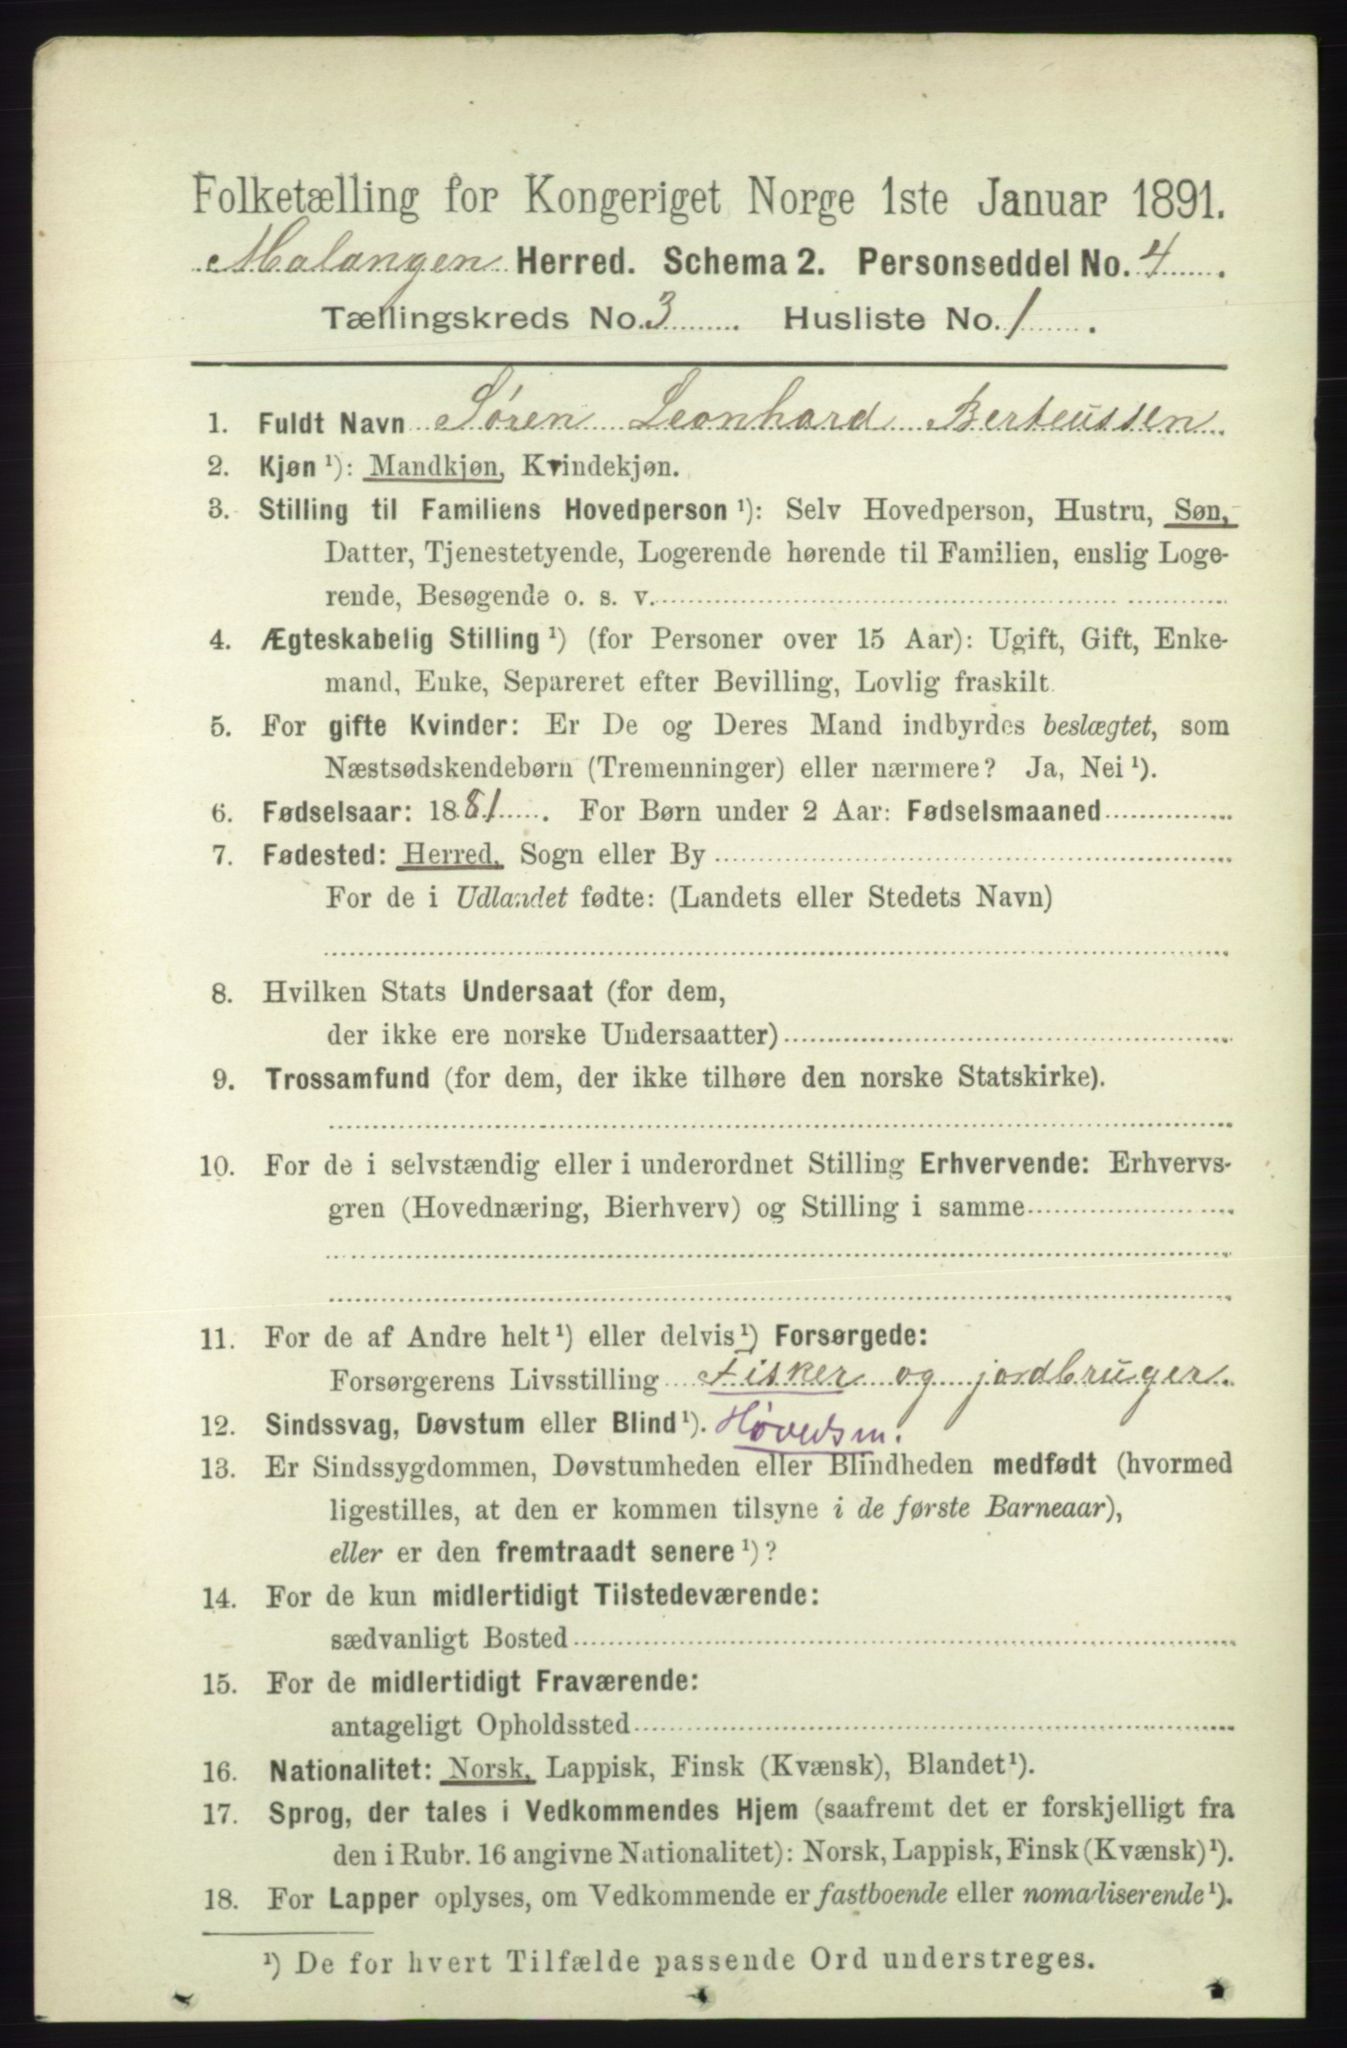 Folketælling for Kongeriget Norge 1ste Januar 1891.
Malangen Herred. Schema 2. Personseddel No. 4.
Tællingskreds No. 3. Husliste No. 1.
1. Fuldt Navn Søren Leonhard Berteussen
2. Kjøn ¹): Mandkjøn, Kvindekjøn.
3. Stilling til Familiens Hovedperson ¹): Selv Hovedperson, Hustru, Søn,
Datter, Tjenestetyende, Logerende hørende til Familien, enslig Loge-
rende, Besøgende o. s. v.
4. Ægteskabelig Stilling ¹) (for Personer over 15 Aar): Ugift, Gift, Enke-
mand, Enke, Separeret efter Bevilling, Lovlig fraskilt
5. For gifte Kvinder: Er De og Deres Mand indbyrdes beslægtet, som
Næstsødskendebørn (Tremenninger) eller nærmere? Ja, Nei ¹).
6. Fødselsaar: 1881. For Børn under 2 Aar: Fødselsmaaned
7. Fødested: Herred, Sogn eller By
For de i Udlandet fødte: (Landets eller Stedets Navn)
8. Hvilken Stats Undersaat (for dem,
der ikke ere norske Undersaatter)
9. Trossamfund (for dem, der ikke tilhøre den norske Statskirke).
10. For de i selvstændig eller i underordnet Stilling Erhvervende: Erhvervs-
gren (Hovednæring, Bierhverv) og Stilling i samme
11. For de af Andre helt ¹) eller delvis ¹) Forsørgede:
Forsørgerens Livsstilling Fisker og jordbruger.
12. Sindssvag, Døvstum eller Blind ¹). Høvedsm.
13. Er Sindssygdommen, Døvstumheden eller Blindheden medfødt (hvormed
ligestilles, at den er kommen tilsyne i de første Barneaar),
eller er den fremtraadt senere ¹)?
14. For de kun midlertidigt Tilstedeværende:
sædvanligt Bosted
15. For de midlertidigt Fraværende:
antageligt Opholdssted
16. Nationalitet: Norsk, Lappisk, Finsk (Kvænsk), Blandet ¹).
17. Sprog, der tales i Vedkommendes Hjem (saafremt det er forskjelligt fra
den i Rubr. 16 angivne Nationalitet): Norsk, Lappisk, Finsk (Kvænsk) ¹).
18. For Lapper oplyses, om Vedkommende er fastboende eller nomadiserende ¹).
¹) De for hvert Tilfælde passende Ord understreges.